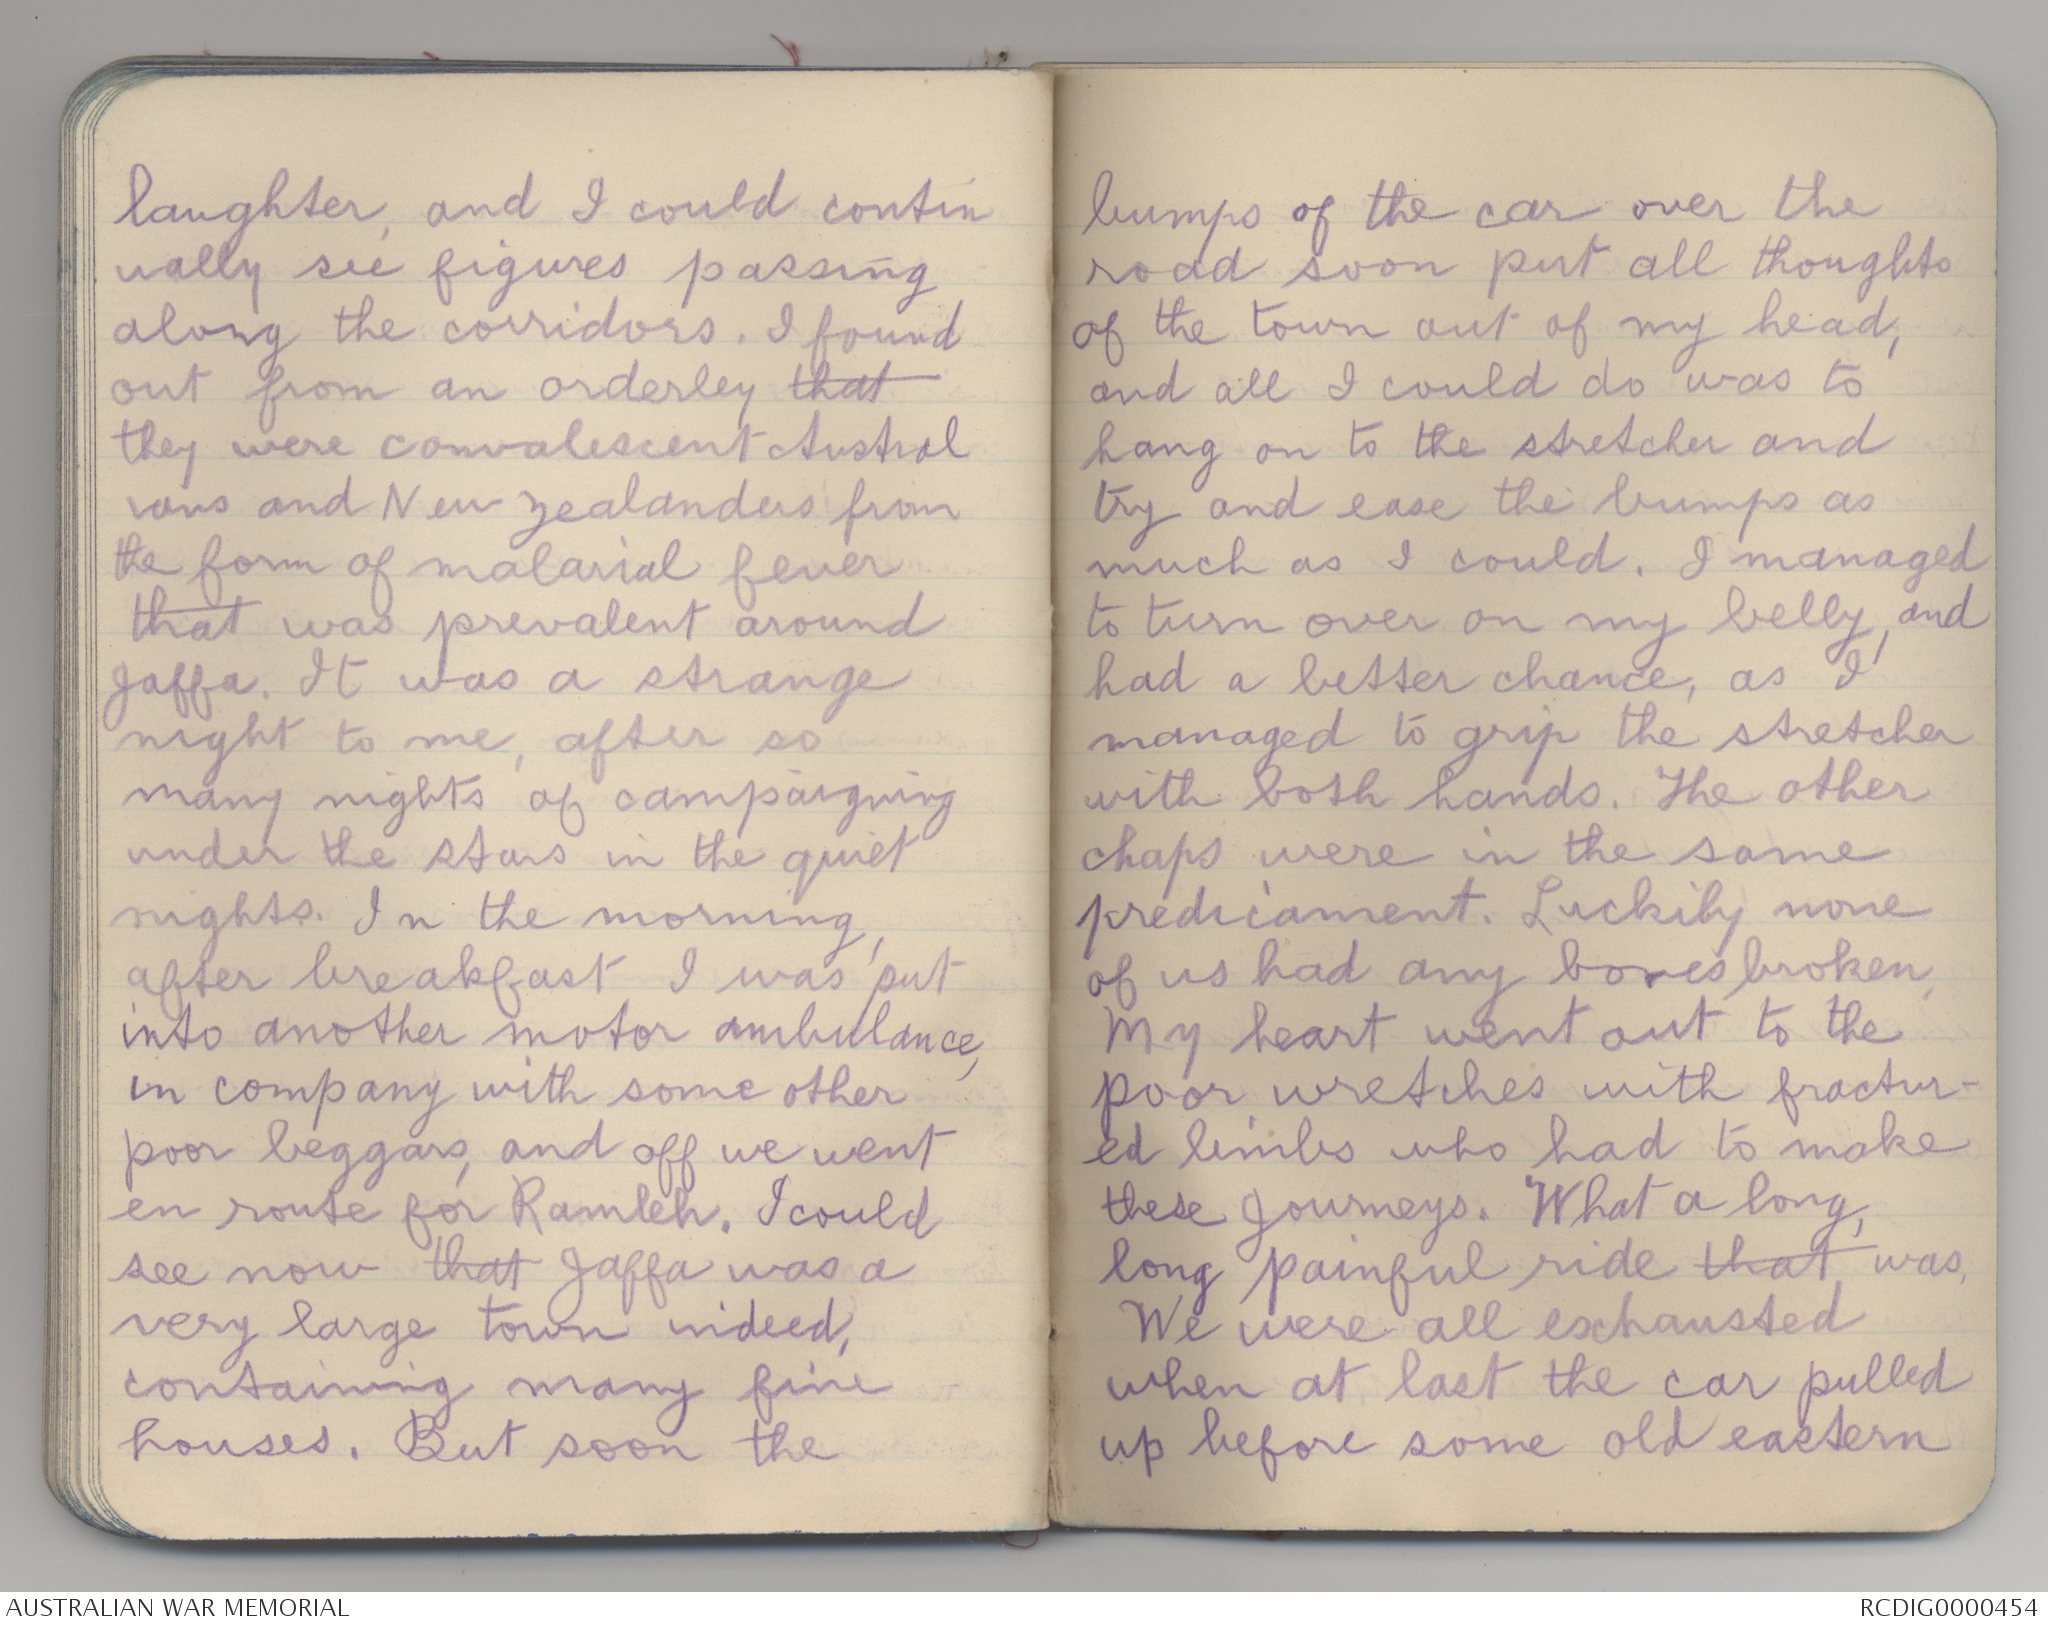 laughter, and I could contin
ually see figures passing
along the corridors. I found
out from an orderley that
they were convalescent Austral
ians and New Zealanders from
the form of malarial fever
that was prevalent around
Jaffa. It was a strange
night to me, after so
many nights of campaigning
under the stars in the quiet
nights. In the morning,
after breakfast I was put
into another motor ambulance,
in company with some other
poor beggars, and off we went
en route for Ramleh. I could
see now that Jaffa was a
very large town indeed,
containing many fine
houses. But soon the
bumps of the car over the
road soon put all thoughts
of the town out of my head,
and all I could do was to
hang on to the stretcher and
try and ease the bumps as
much as I could. I managed
to turn over on my belly, and
had a better chance, as I
managed to grip the stretcher
with both hands. The other
chaps were in the same
predicament. Luckily none
of us had any bones broken,
My heart went out to the
poor wretches with fractur-
ed limbs who had to make
these journeys. What a long,
long painful ride that was,
We were all exhausted
when at last the car pulled
up before some old eastern
AUSTRALIAN WAR MEMORIAL
RCDIG0000454